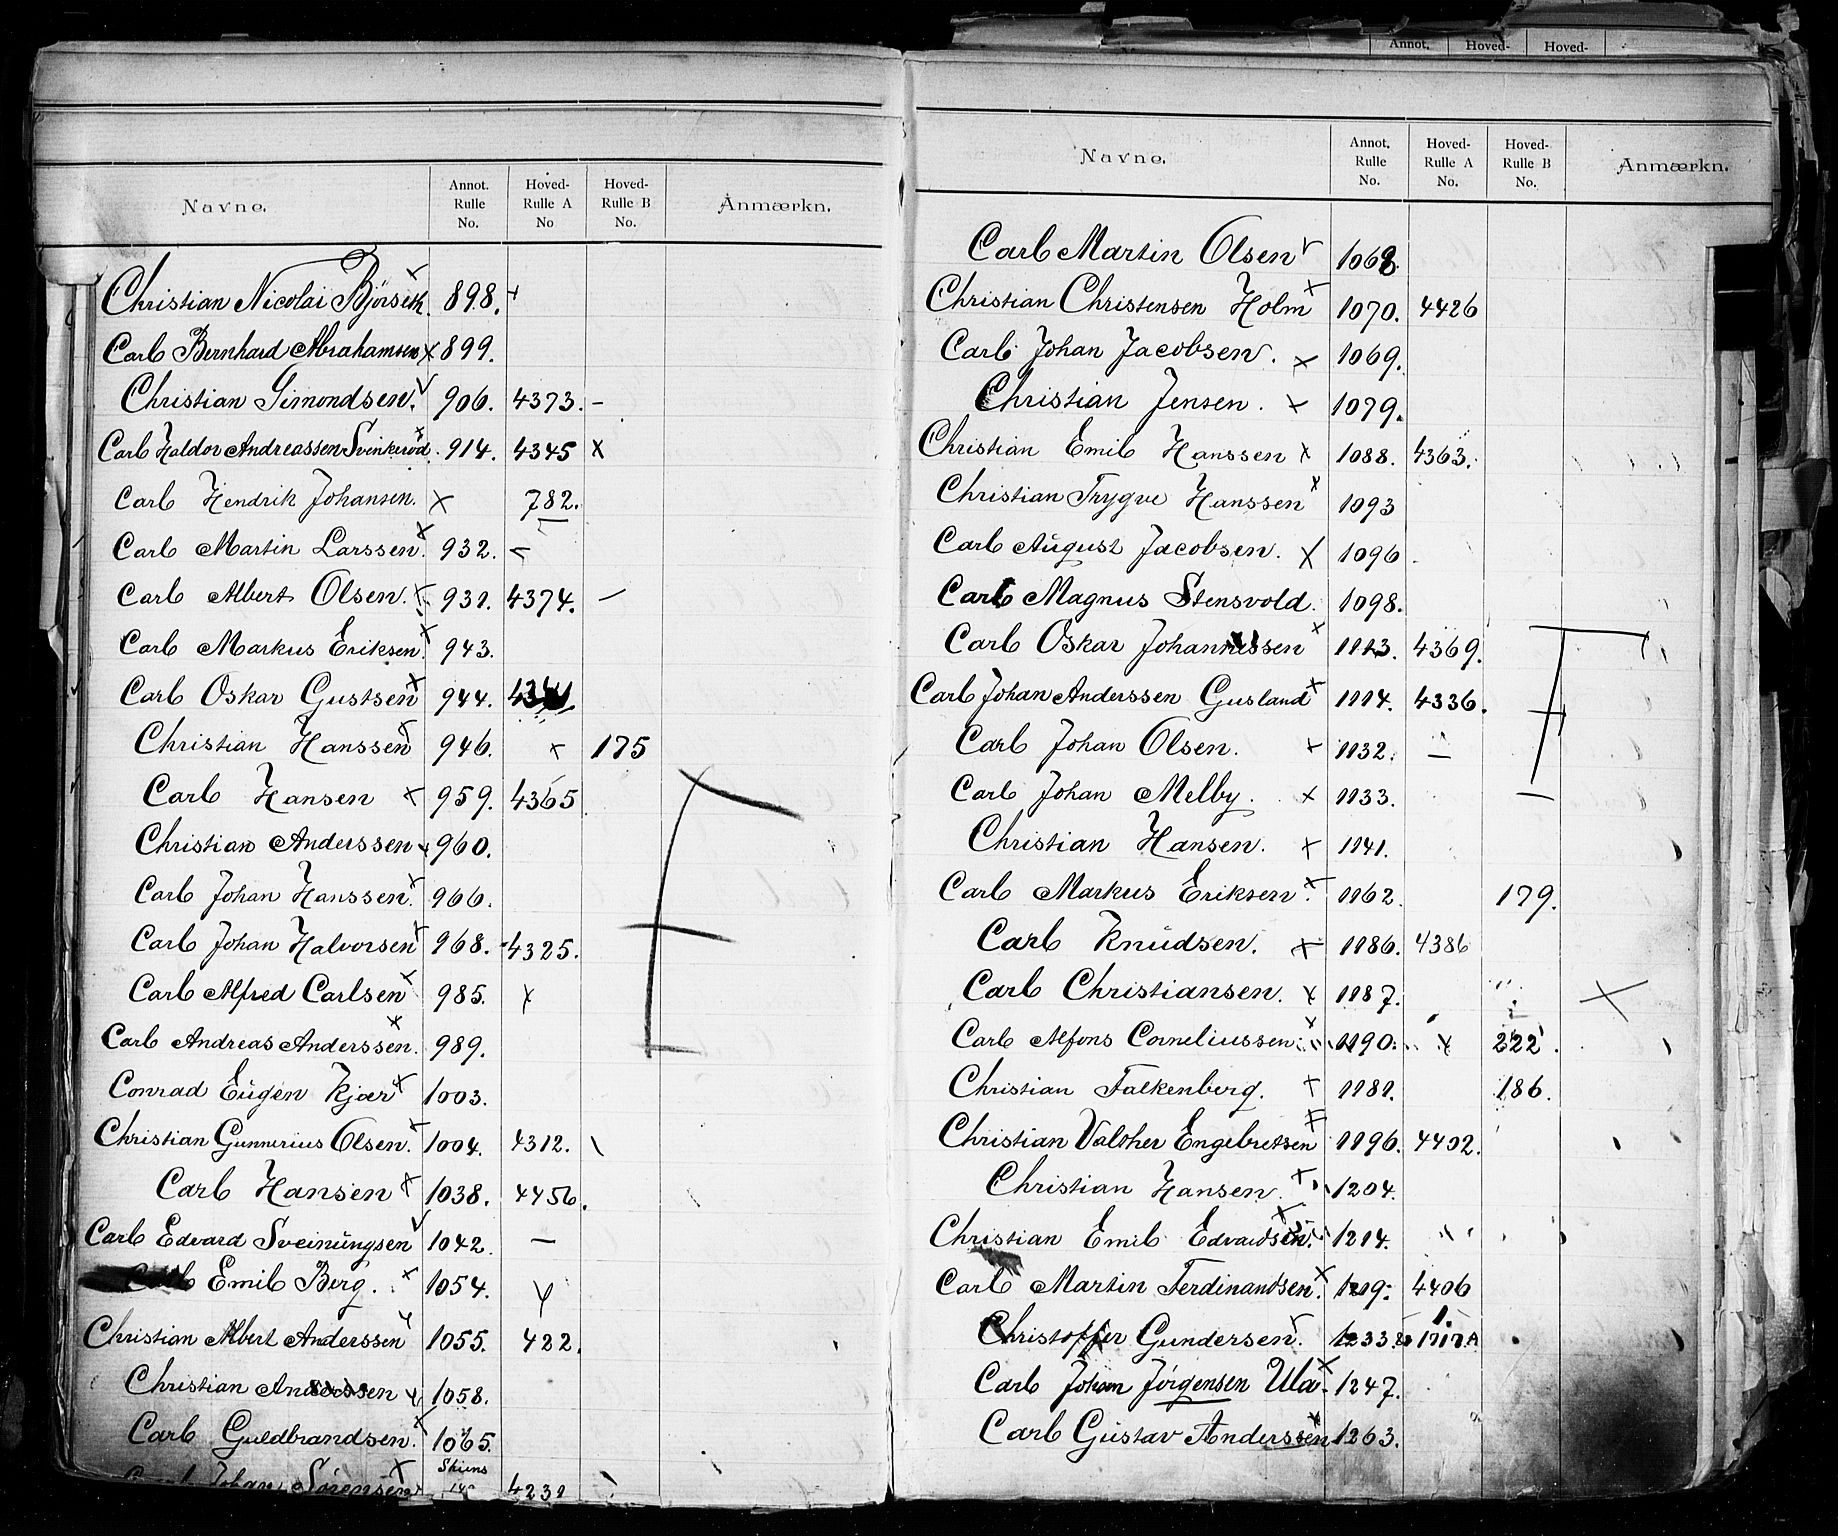 Annot. Hoved- Hoved-
Navne. Annot. Rulle No. Hoved-Rulle A No Hoved-Rulle B No. Anmærkn.
Christian Nicolai x 898.
Carl Bernhard Abrahamsen x 899.
Christian Simondsen. v 906. 4373. –
Carl Haldor Andreassen Svinkerød. x 914. 4345 x
Carl Hendrik Johansen. x 782.
Carl Martin Larssen. x 932. –
Carl Albert Olsen. x 931. 4374. –
Carl Markus Eriksen. x 943.
Carl Oskar Gustsen x 944.
Christian Hanssen x 946. x 175
Carl Hansen x 959. 4365
Christian Anderssen x 960.
Carl Johan Hanssen. x 966.
Carl Johan Halvorsen x 968. 4325.
Carl Alfred Carlsen x 985. x
Carl Andreas Anderssen. x 989.
Conrad Eugen Kjær x 1003.
Christian Gunnerius Olsen. x 1004. 4312.
Carl Hansen x 1038. 4456.
Carl Edvard Sveinungsen v 1042. –
Carl Emil Berg. x 1054.
Christian Albert Anderssen 1055. 422.
Christian Anderssen x 1058.
Carl Guldbrandsen. x 1065.
Skiens
Johan Sørensen x 4231
Navne. Annot. Rulle No. Hoved-Rulle A No. Hoved-Rulle B No. Anmærkn.
Carl Martin Olsen v 1068.
Christian Christensen Holm x 1070. 4426
Carl Johan Jacobsen. x 1069.
Christian Jensen. x 1079.
Christian Emil Hanssen x 1088. 4363.
Christian Trygve Hanssen x 1093
Carl August Jacobsen. x 1096
Carl Magnus Stensvold. 1098.
Carl Oskar Johannessen x 1113. 4369.
Carl Johan Anderssen Gusland x 1114. 4336.
Carl Johan Olsen. x 1132. –
Carl Johan Melby. x 1133. –
Christian Hansen. x 1141.
Carl Markus Eriksen. x 1162. 179.
Carl Knudsen. x 1186. 4386
Carl Christiansen. x 1187. x
Carl Alfons Corneliussen. x 1190. x 222.
Christian Falkenberg. x 1181. 186.
Christian Valther Engebretsen x 1196. 4402.
Christian Hansen. x 1204.
Christian Emil Edvardsen. x 1214.
Carl Martin Ferdinandsen. x 1219. 4406
Christoffer Gundersen. 1233
Carl Johan Jørgensen Ula. x 1247.
Carl Gustav Anderssen x 1263.